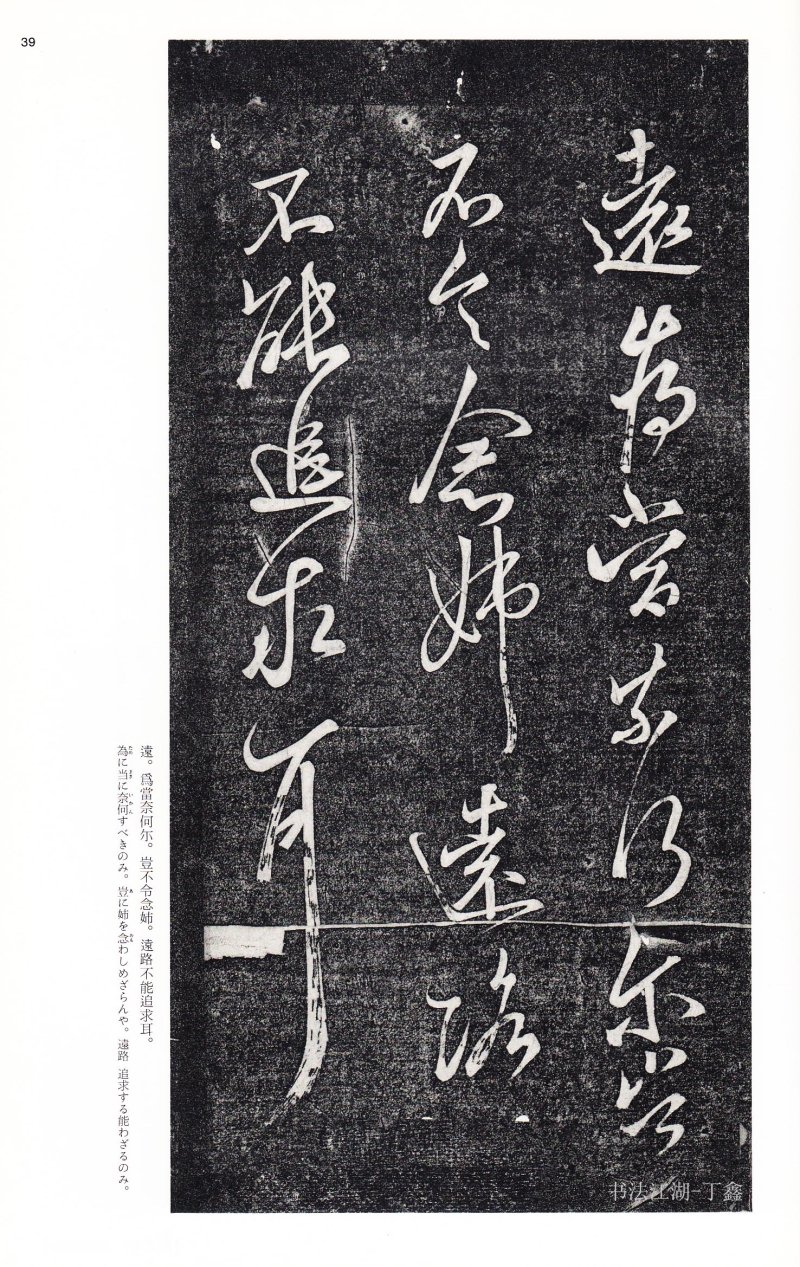 39
遠為當奈何尓豈
不令念姉遠路
不能追求耳
遠。爲當奈何尓。豈不令念姉。遠路不能追求耳。
為に当に奈何すべきのみ。豈に姉を念わしめざらんや。遠路 追求する能わざるのみ。
书法江湖-丁鑫